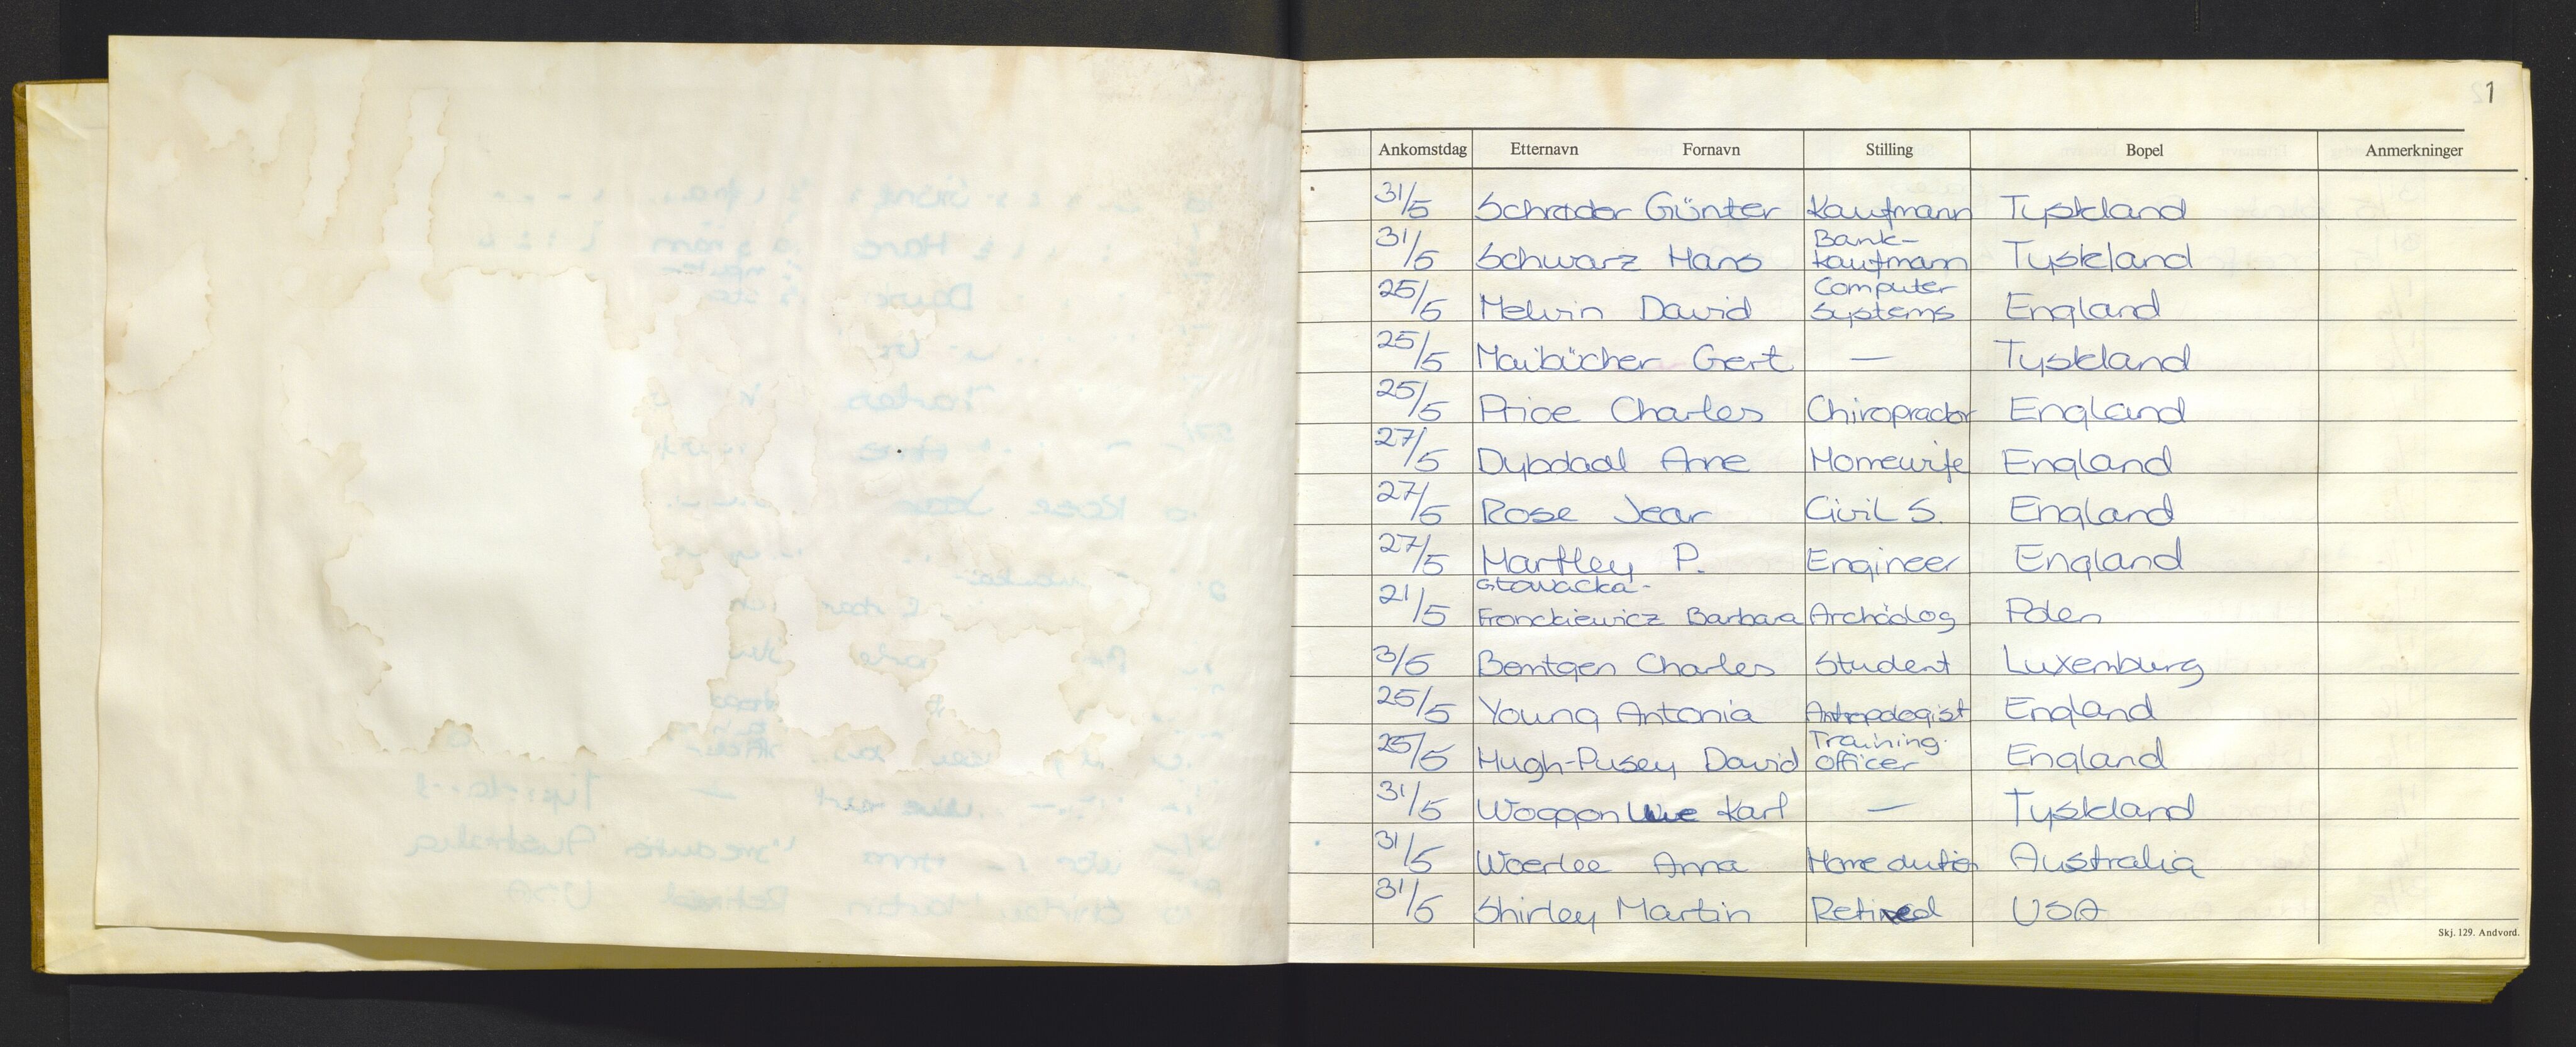 1
Ankomstdag Etternavn Fornavn Stilling Bopel Anmerkninger
31/5 Schrader Günter Kaufmann Tyskland
31/5 Schwarz Hans Bank-
kaufmann Tyskland
25/5 Melvin David Computer
Systems England
25/5 Maibücher Gert — Tyskland
25/5 Price Charles Chiropractor England
27/5 Dybdadl Anne Homewife England
27/5 Rose Jean Civil S. England
27/5 Hartley P. Engineer England
21/5 Glowacka-
Fronckiewicz Barbara Archäolog Polen
3/5 Bemtgen Charles Student Luxemburg
25/5 Young Antonia Antropologist England
25/5 Hugh-Pusey David Training
Officer England
31/5 Woggon Uwe Karl — Tyskland
31/5 Woerlee Anna Home duties Australia
31/5 Shirley Martin Retired USA
Skj. 129. Andvord.